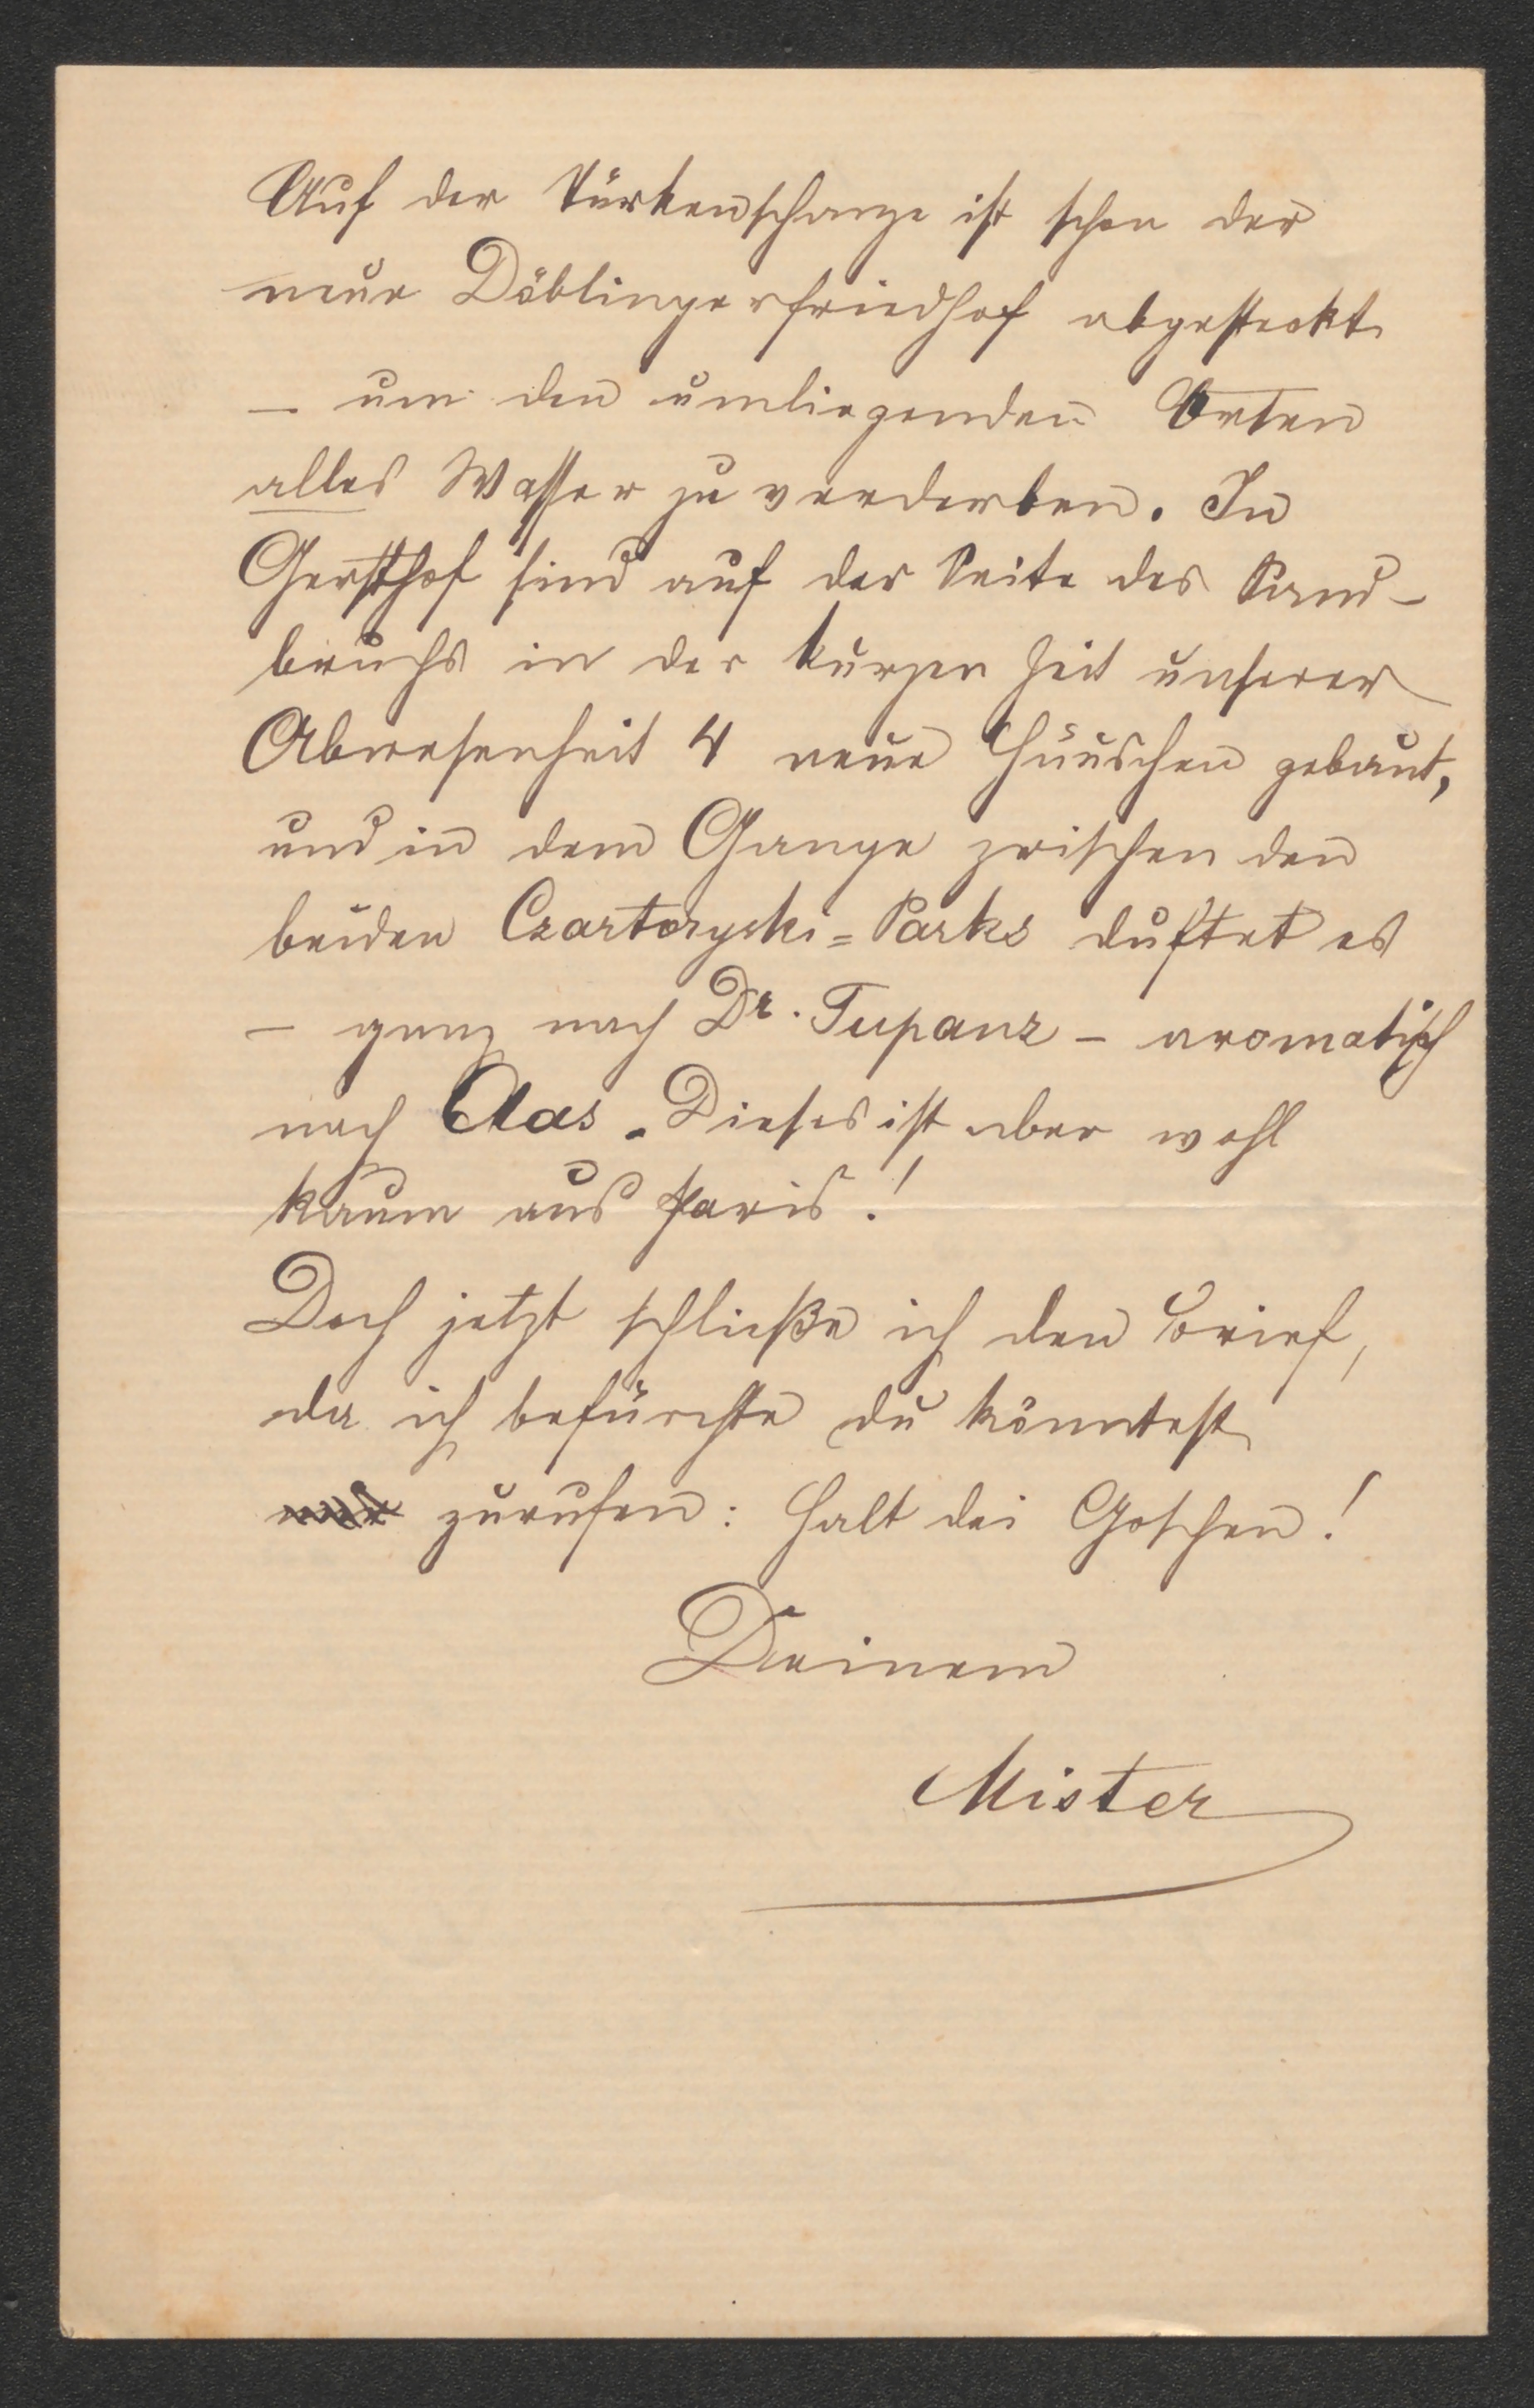 Auf der Türkenschanze ist schon der
neue Döblingerfriedhof abgesteckt
– um den umliegenden Orten
alles Wasser zu verderben. In
Gersthof sind auf der Seite des Sand-
bruchs in der kurzen Zeit unserer
Abwesenheit 4 neue Häuschen gebaut,
und in dem Gange zwischen den
beiden Czartoryski=Parks duftet es
– ganz nach Dr. Tupanz – aromatisch
nach Aas. Dieses ist aber wohl
kaum aus Paris!
Doch jetzt schließe ich den Brief,
da ich befürchte du könntest
mir zurufen: Halt dei Goschen!
Deinem
Mister